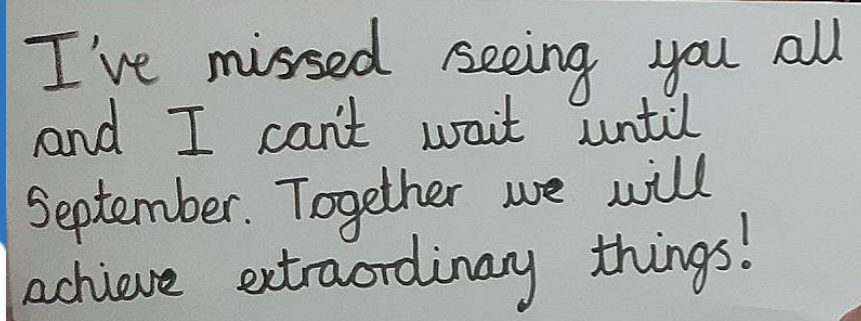 I've missed seeing you all
and I can't wait until
September. Together we will
achieve extraordinary things!